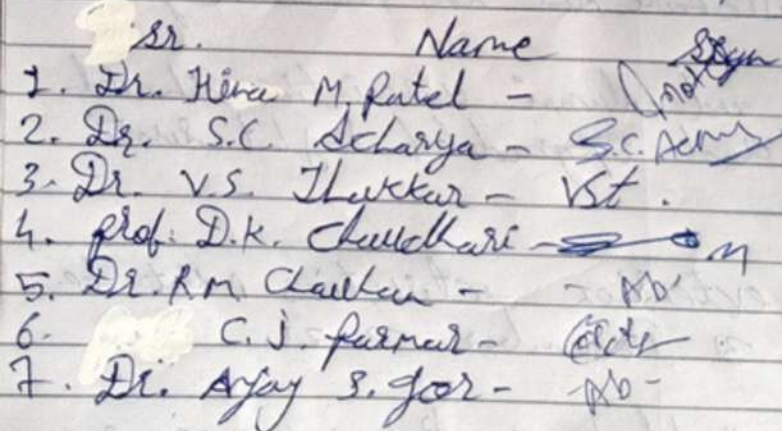 sr. Name Sign
1. Dr. Hina M. Patel -
2. Dr. S.C. Acharya - S.C. Achy
3. Dr. V.S. Thakkar - VSt.
4. prof. D.K. Chaudhari -
5. Dr. R.M. Chauhan - - Ab -
6. C.J. Parmar -
7. Dr. Ajay S. Gor - - Ab -